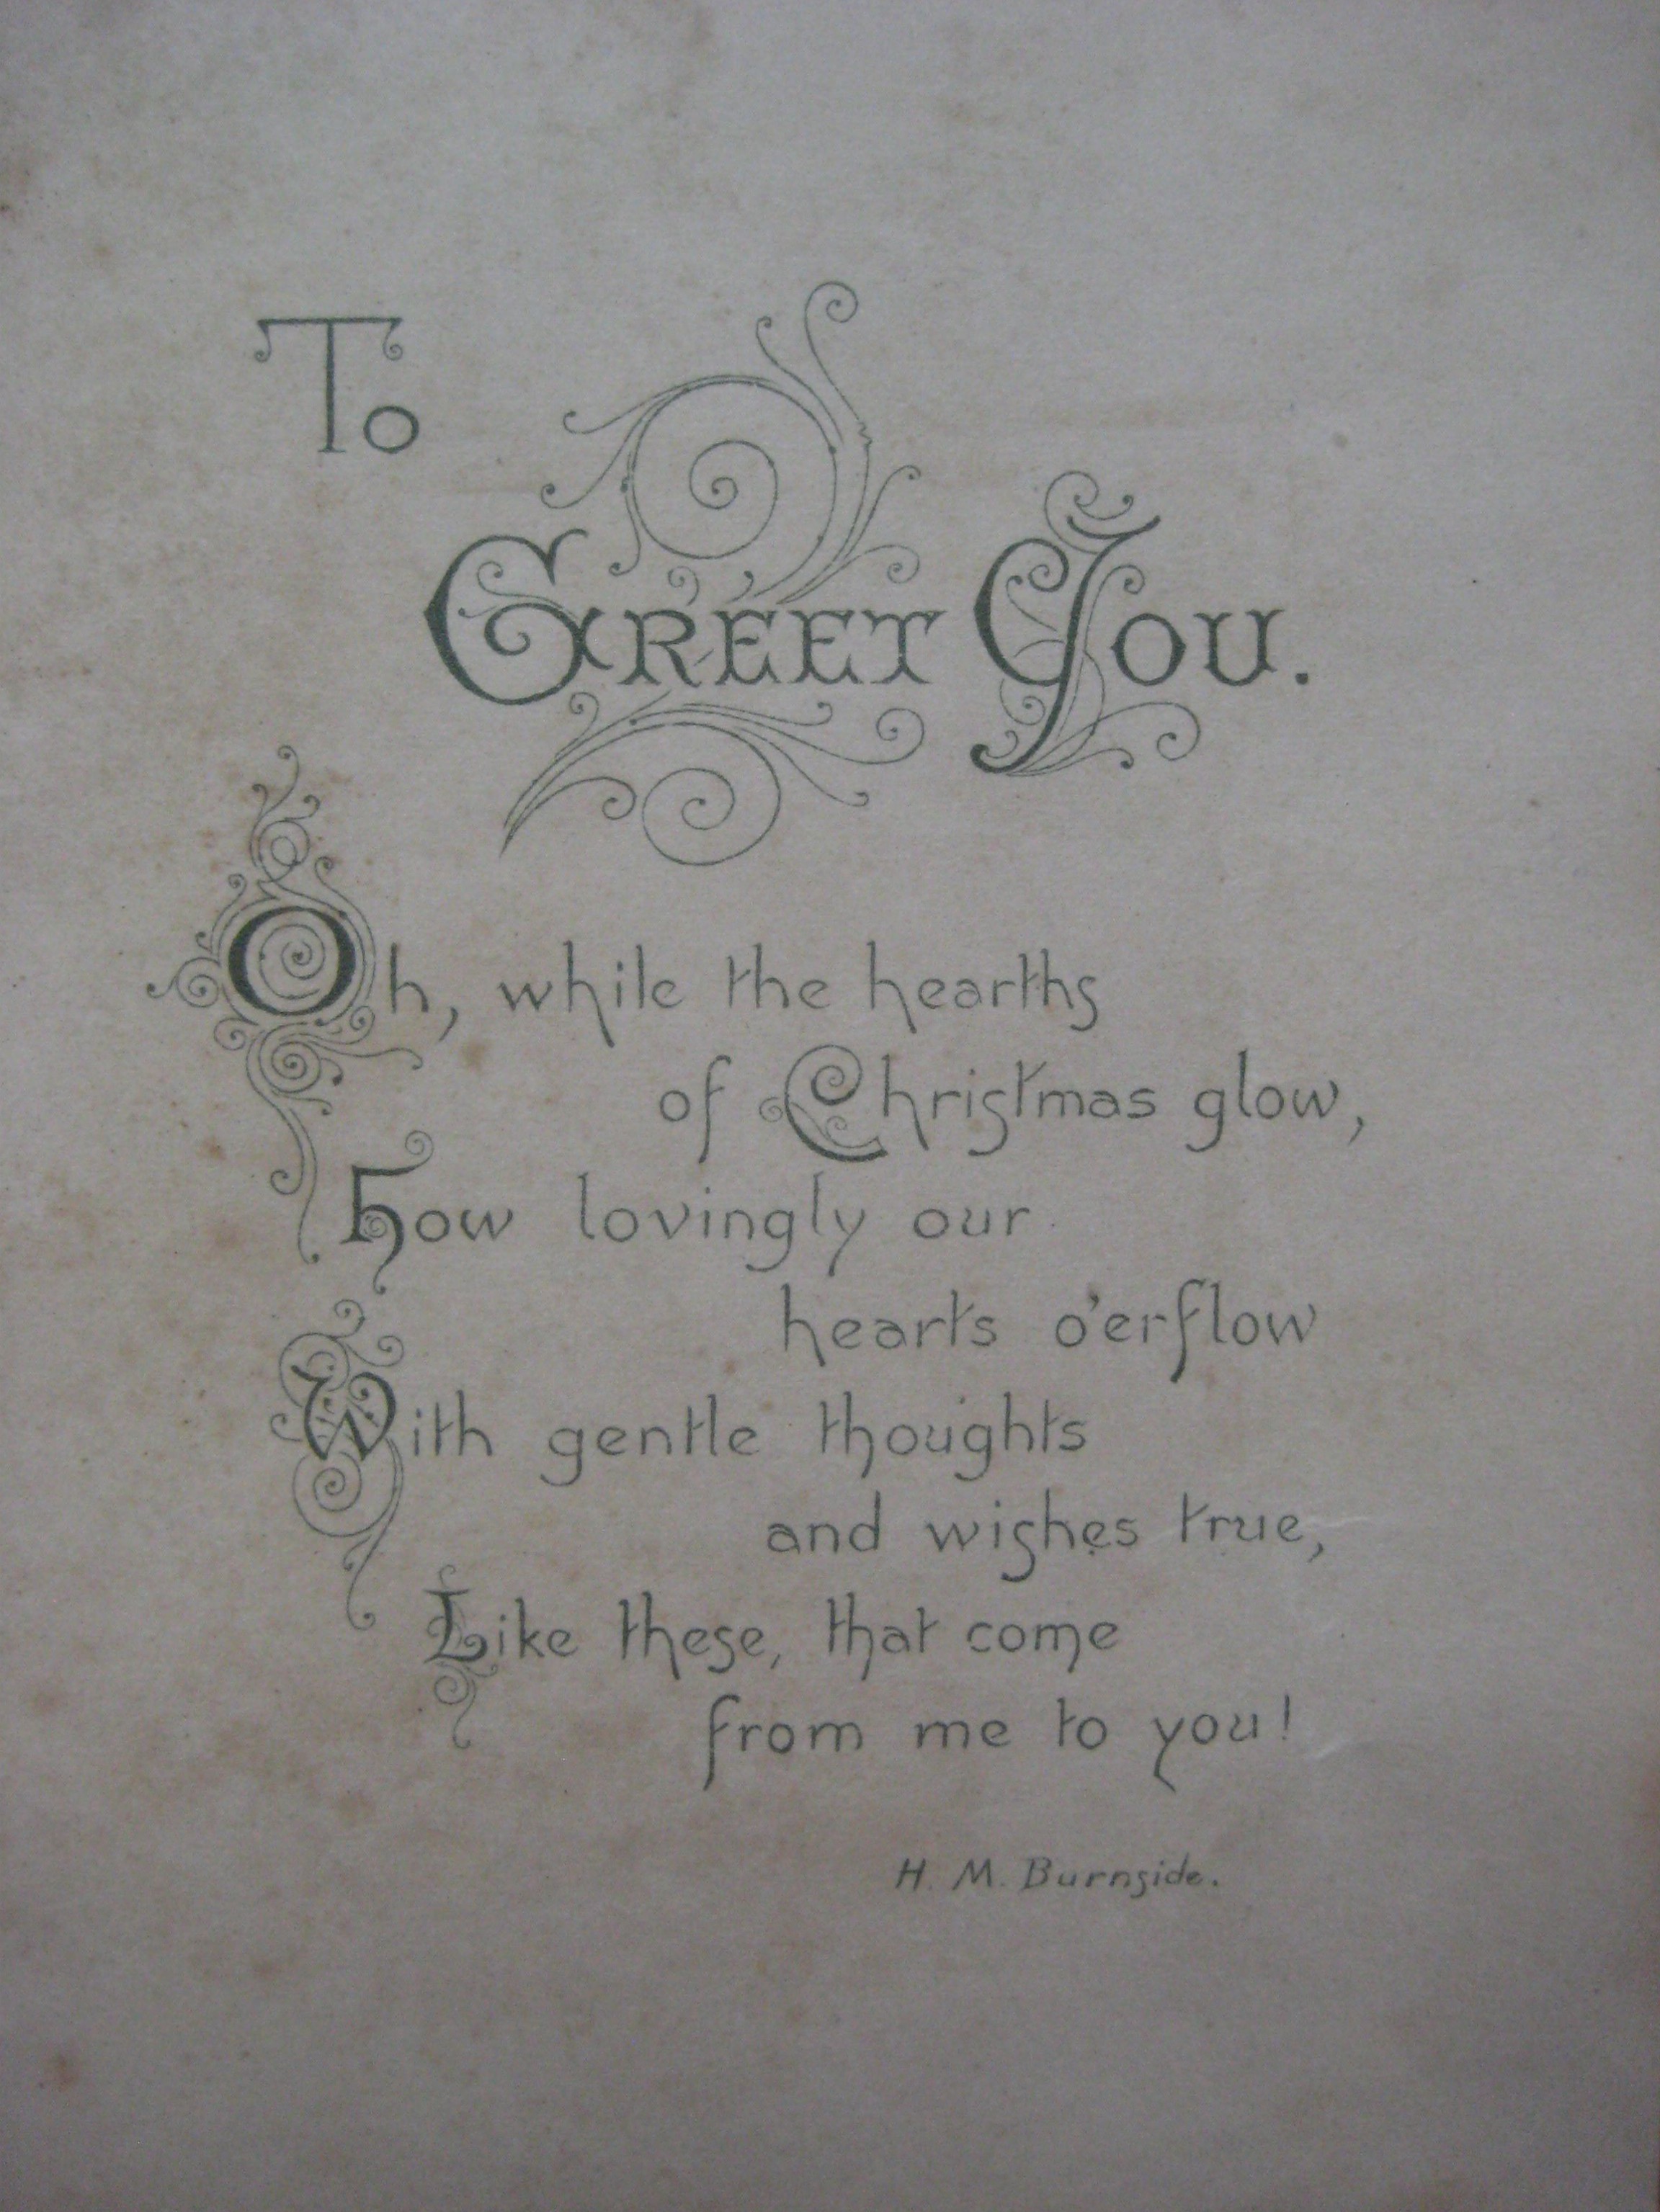 To
GREET YOU.
Oh, while the hearths
of Christmas glow,
How lovingly our
hearts o'erflow
With gentle thoughts
and wishes true,
Like these, that come
from me to you!
H. M. Burnside.